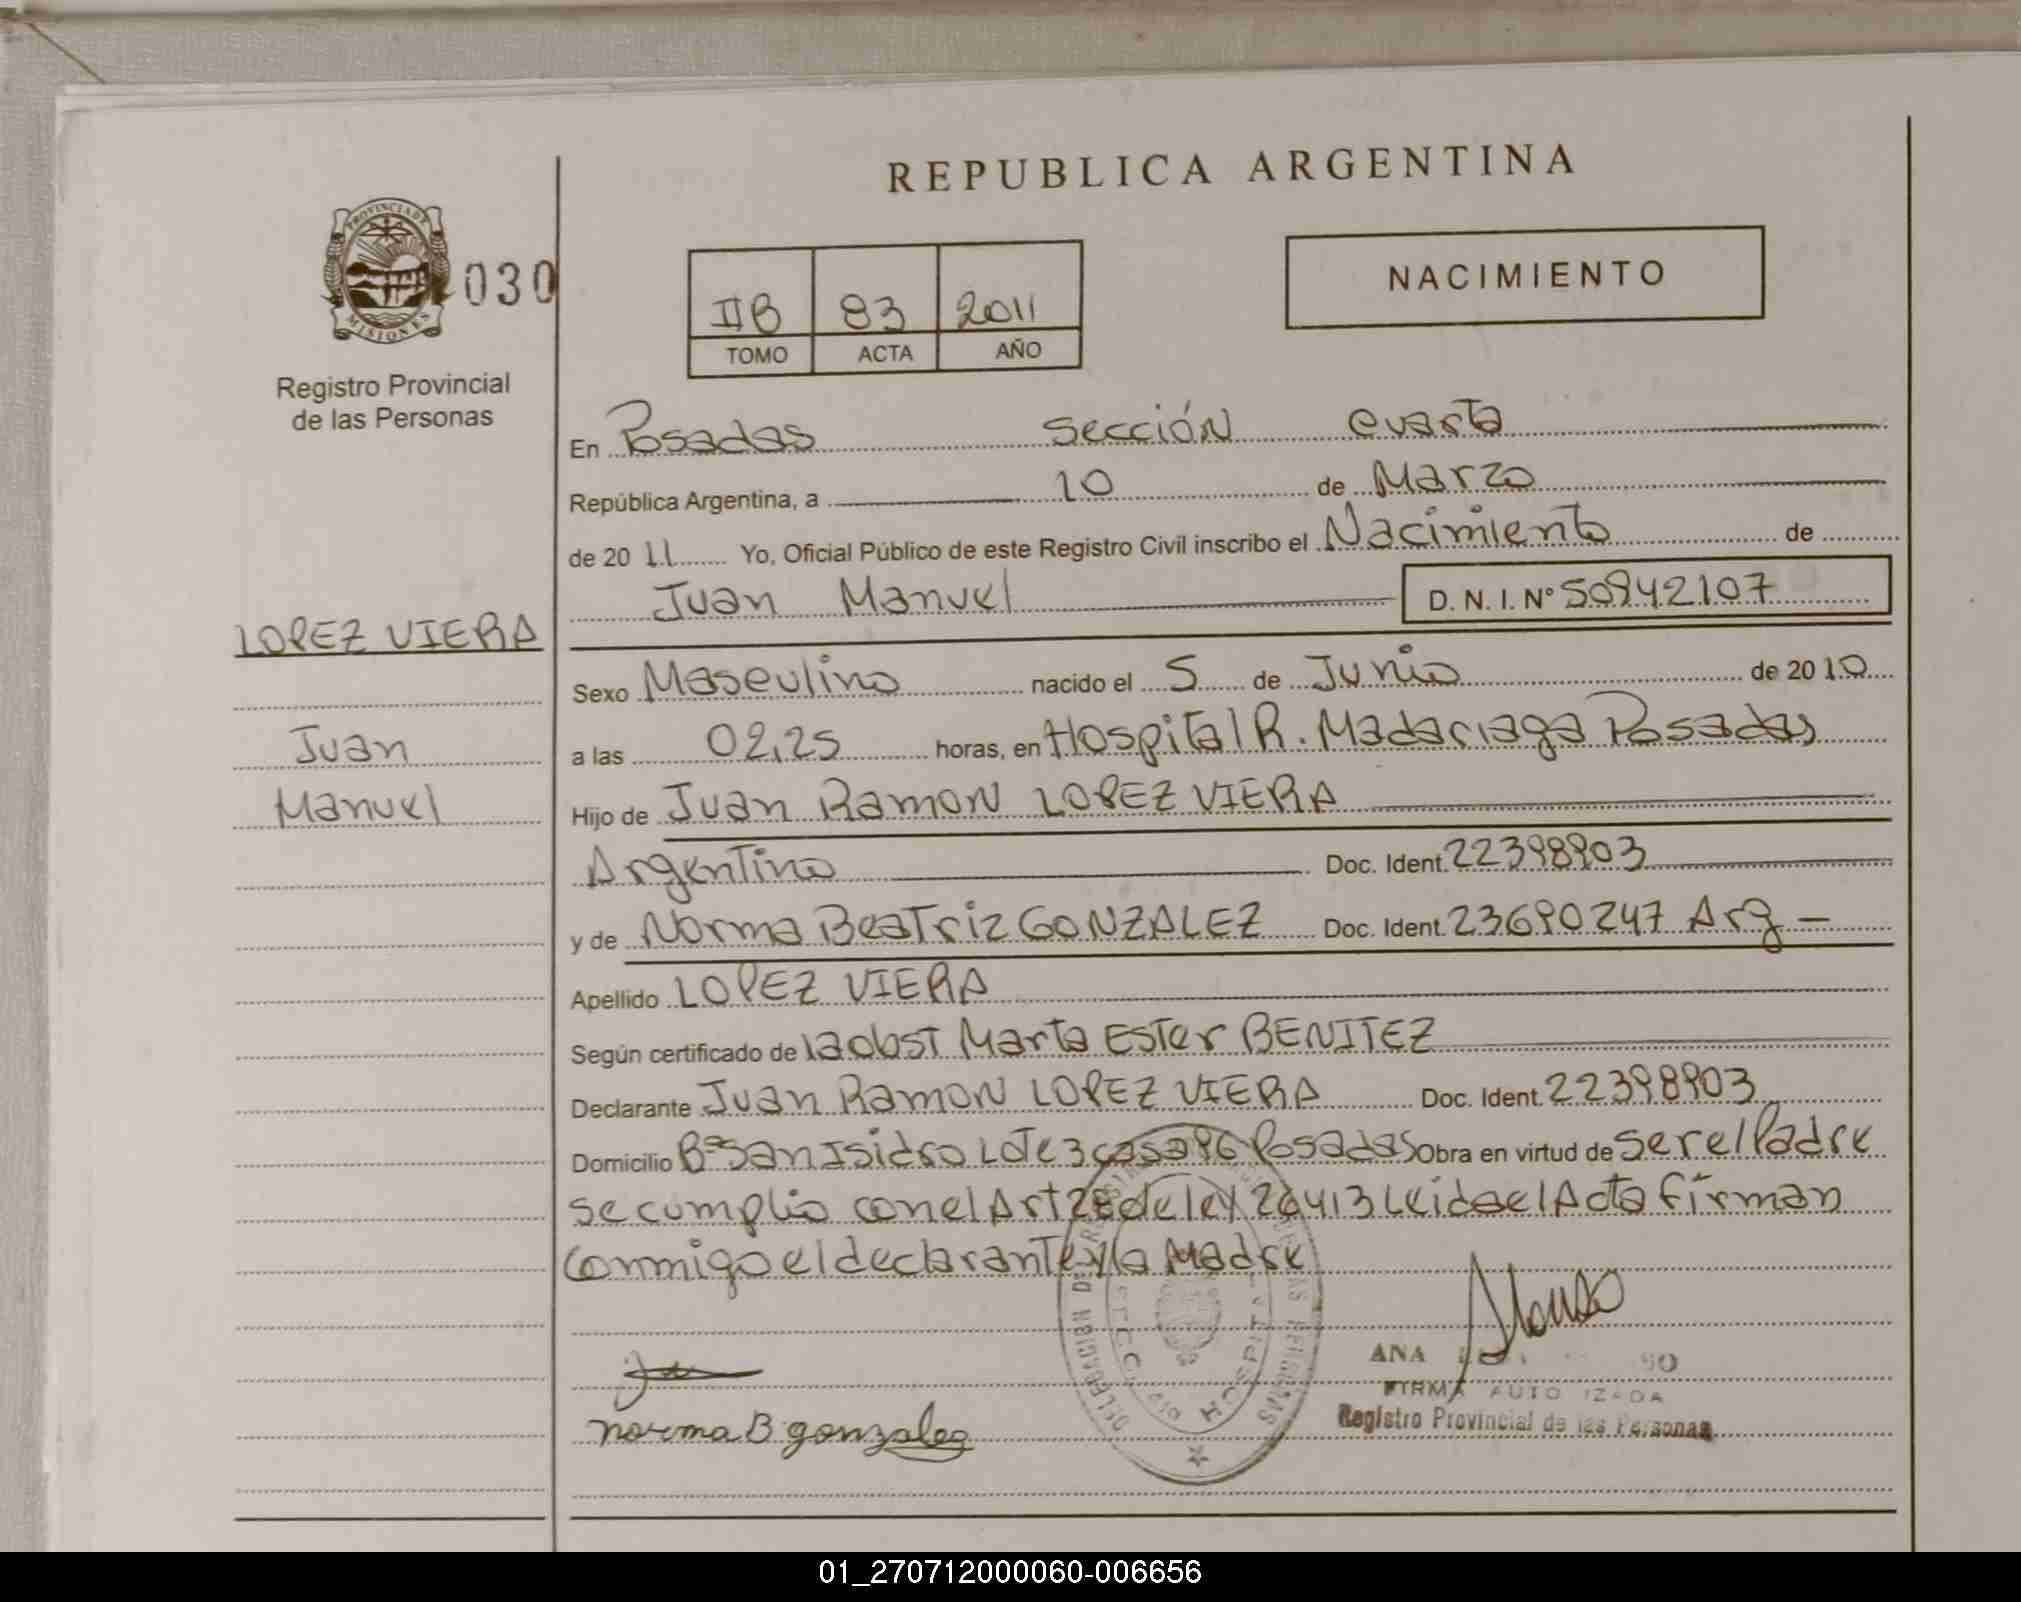 REPUBLICA ARGENTINA
PROVINCIA DE MISIONES
030
Registro Provincial
de las Personas
IIB 83 2011
TOMO ACTA AÑO
NACIMIENTO
En Posadas Sección Cuarta
República Argentina, a 10 de Marzo
de 2011 Yo, Oficial Público de este Registro Civil inscribo el Nacimiento de
Juan Manuel D. N. I. Nº 50942107
LOPEZ VIERA
Juan
Manuel
Sexo Masculino nacido el 5 de Junio de 2010
a las 02,25 horas, en Hospital R. Madariaga Posadas
Hijo de Juan Ramon LOPEZ VIERA
Argentino Doc. Ident. 22398903
y de Norma Beatriz GONZALEZ Doc. Ident. 23690247 Arg –
Apellido LOPEZ VIERA
Según certificado de la obst Marta Ester BENITEZ
Declarante Juan Ramon LOPEZ VIERA Doc. Ident. 22398903
Domicilio Bº San Isidro Lote 3 casa 96 Posadas Obra en virtud de ser el Padre
se cumplio con el Art 28 de ley 26413 Leida el Acta firman
conmigo el declarante y la Madre
norma B gonzalez
ANA
FIRMA AUTORIZADA
Registro Provincial de las Personas
DELEGACION
HOSPITAL
01_270712000060-006656